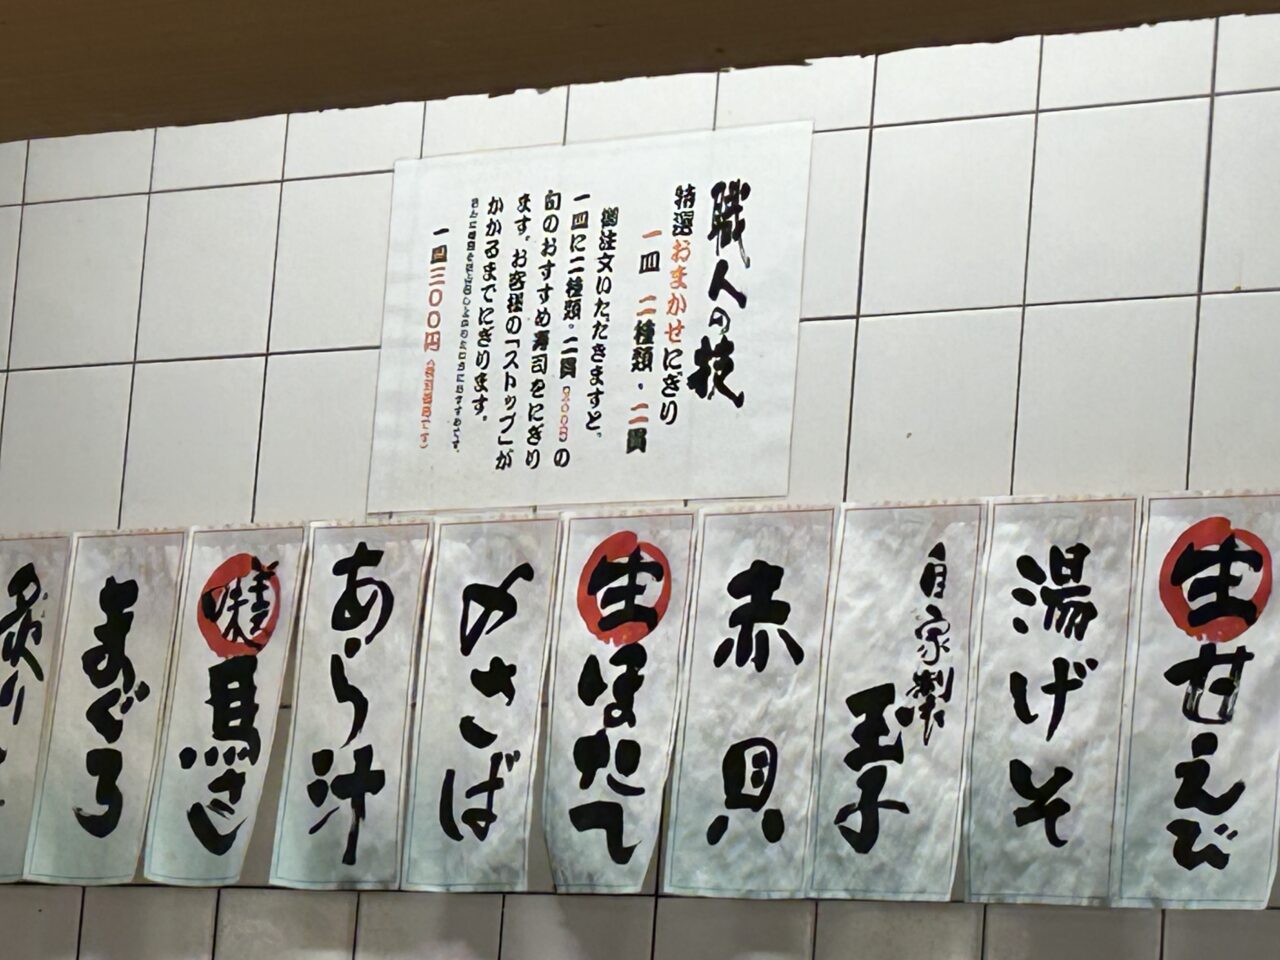 職人の技
特選おまかせにぎり
一皿 二種類・二貫
御注文いただきますと、
一皿に二種類・二貫
の
旬のおすすめ寿司をにぎり
ます。お客様の「ストップ」が
かかるまでにぎります。
一皿三００円
生甘えび
湯げそ
自家製
玉子
赤貝
生ほたて
〆さば
あら汁
美味
馬さし
まぐろ
炙り